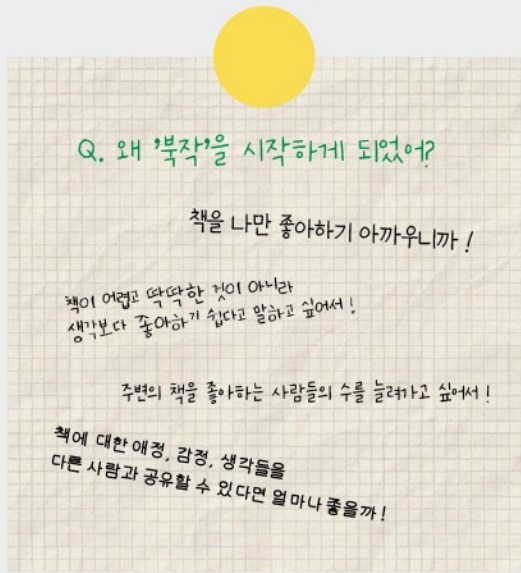 Q. 왜 '북작'을 시작하게 되었어?
책을 나만 좋아하기 아까우니까!
책이 어렵고 딱딱한 것이 아니라
생각보다 좋아하기 쉽다고 말하고 싶어서!
주변의 책을 좋아하는 사람들의 수를 늘려가고 싶어서!
책에 대한 애정, 감정, 생각들을
다른 사람과 공유할 수 있다면 얼마나 좋을까!